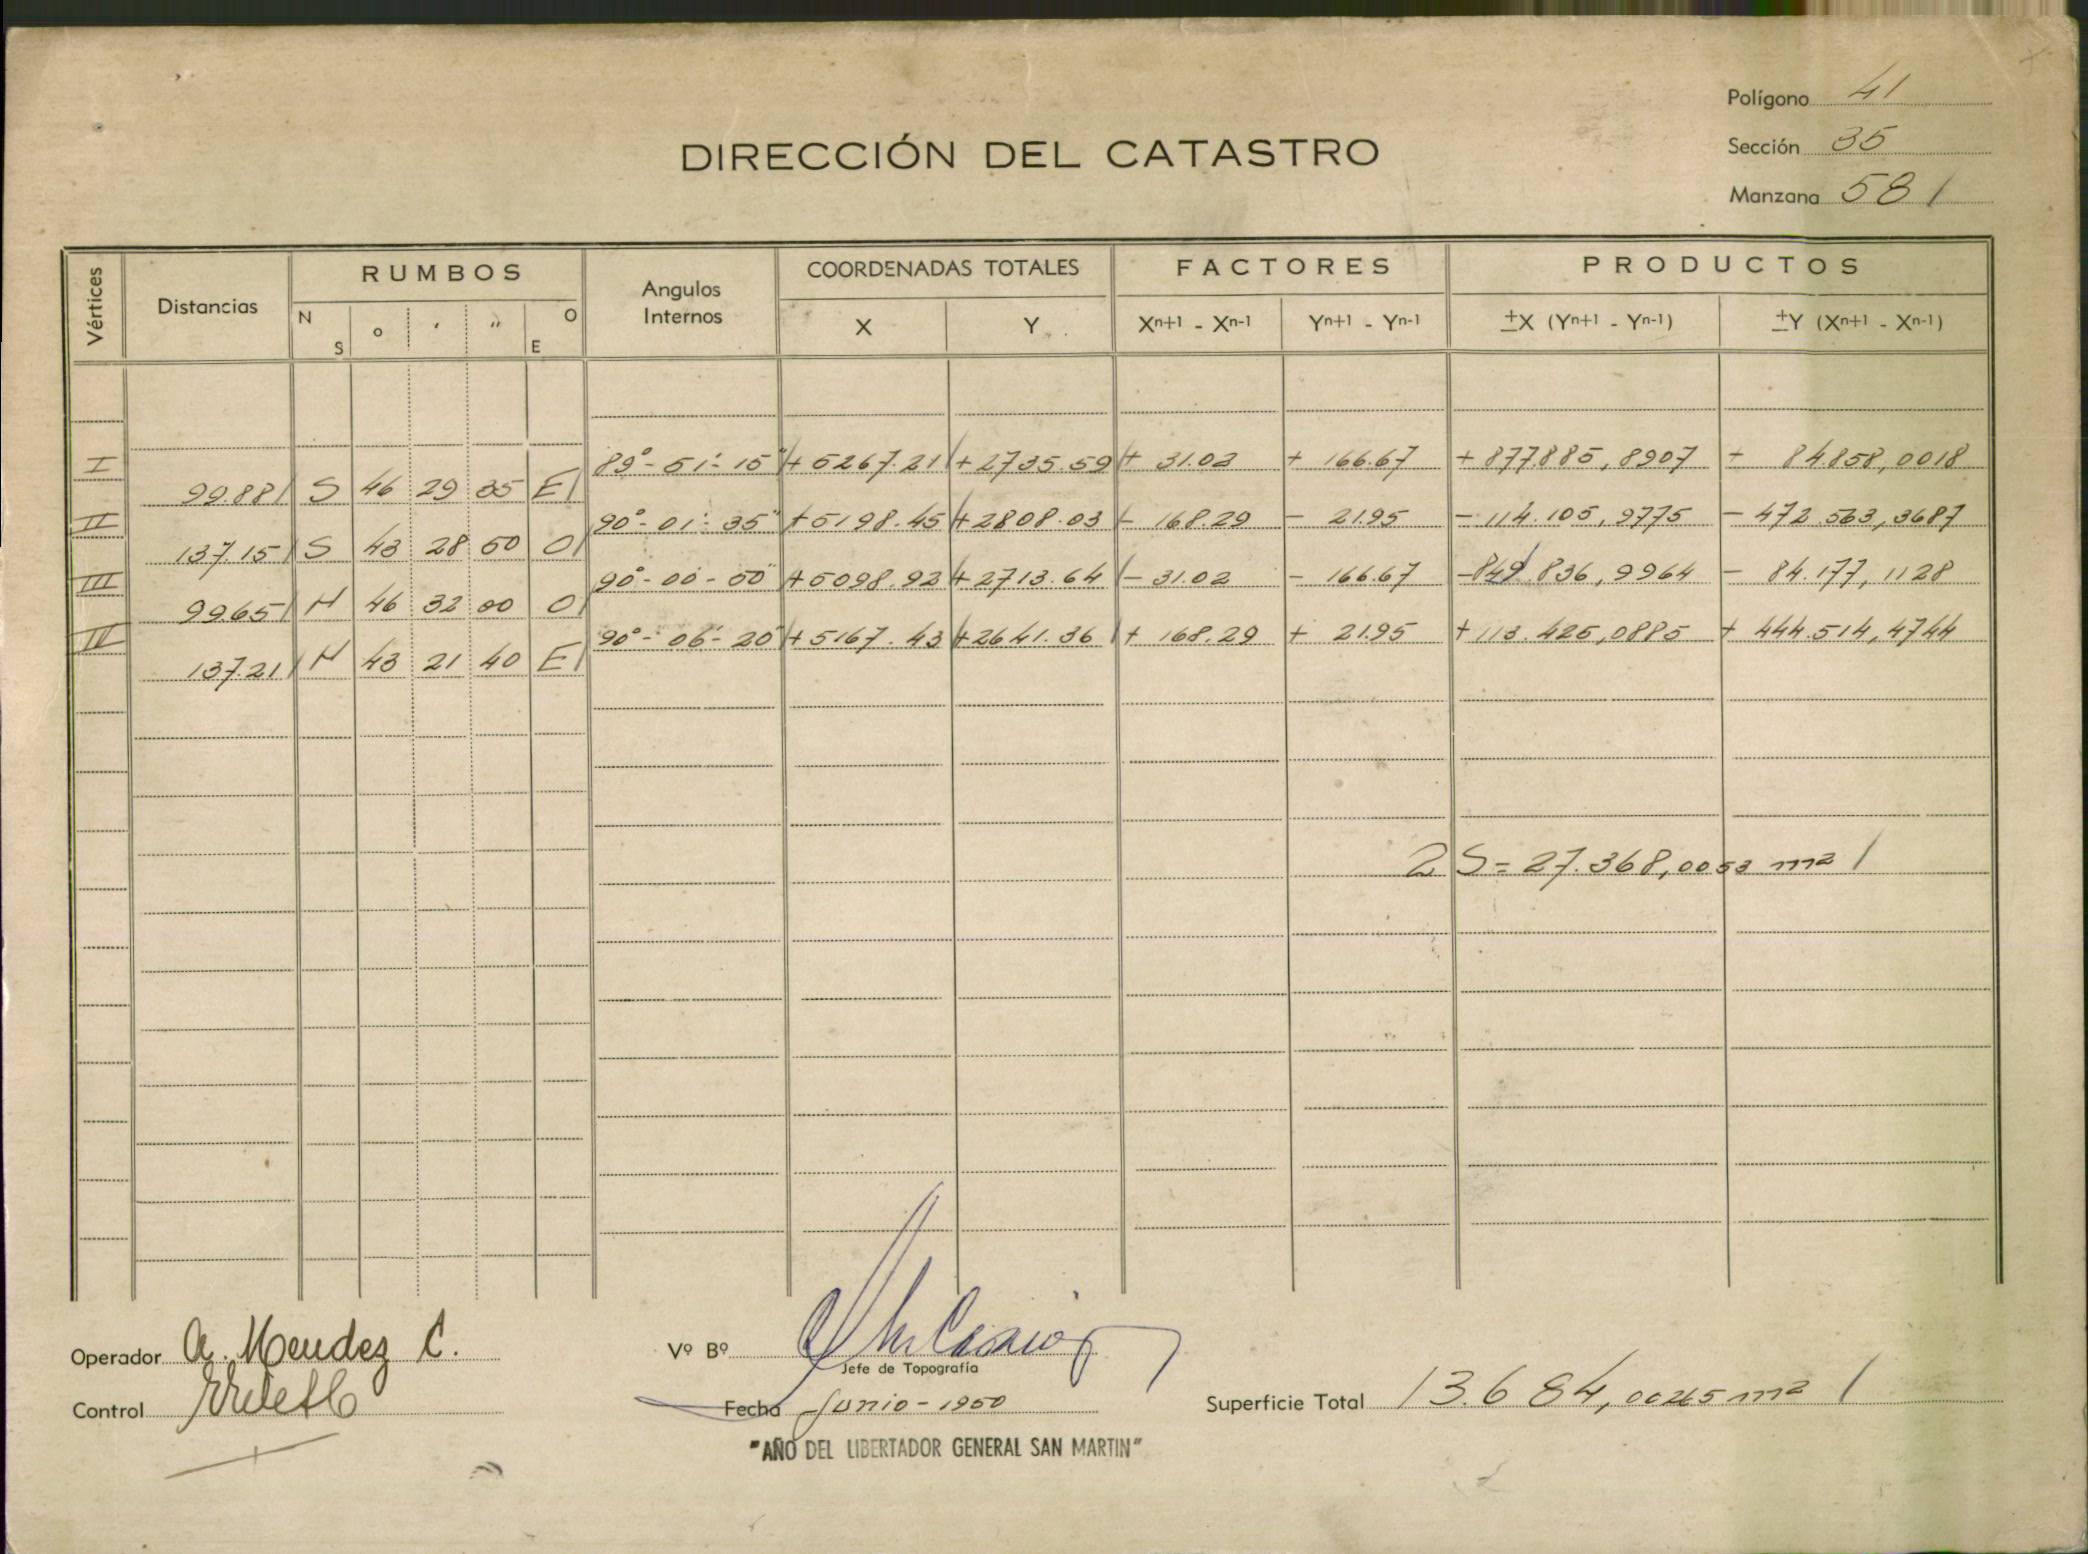 Polígono 41
DIRECCIÓN DEL CATASTRO
Sección 35
Manzana 581
Vértices Distancias RUMBOS N S o ' " O E Angulos Internos COORDENADAS TOTALES X Y FACTORES Xn+1 - Xn-1 Yn+1 - Yn-1 PRODUCTOS ±X (Yn+1 - Yn-1) ±Y (Xn+1 - Xn-1)
I 89°-51'-15" +5267.21 +2735.59 + 31.02 + 166.67 +877.885,8907 + 84.858,0018
99.88 S 46 29 35 E
II 90°-01'-35" +5198.45 +2808.03 - 168.29 - 21.95 -114.105,9775 - 472.563,3687
137.15 S 43 28 50 O
III 90°-00-50" +5098.92 +2713.64 - 31.02 - 166.67 -849.836,9964 - 84.177,1128
99.65 N 46 32 00 O
IV 90°-06'-20" +5167.43 +2641.36 + 168.29 + 21.95 +113.425,0885 + 444.514,4744
137.21 N 43 21 40 E
2 S = 27.368,0053 m2
Operador A. Mendez C.
Vº Bº
Jefe de Topografía
Control
Fecha Junio-1950
Superficie Total 13.684,00265 m2
"AÑO DEL LIBERTADOR GENERAL SAN MARTIN"